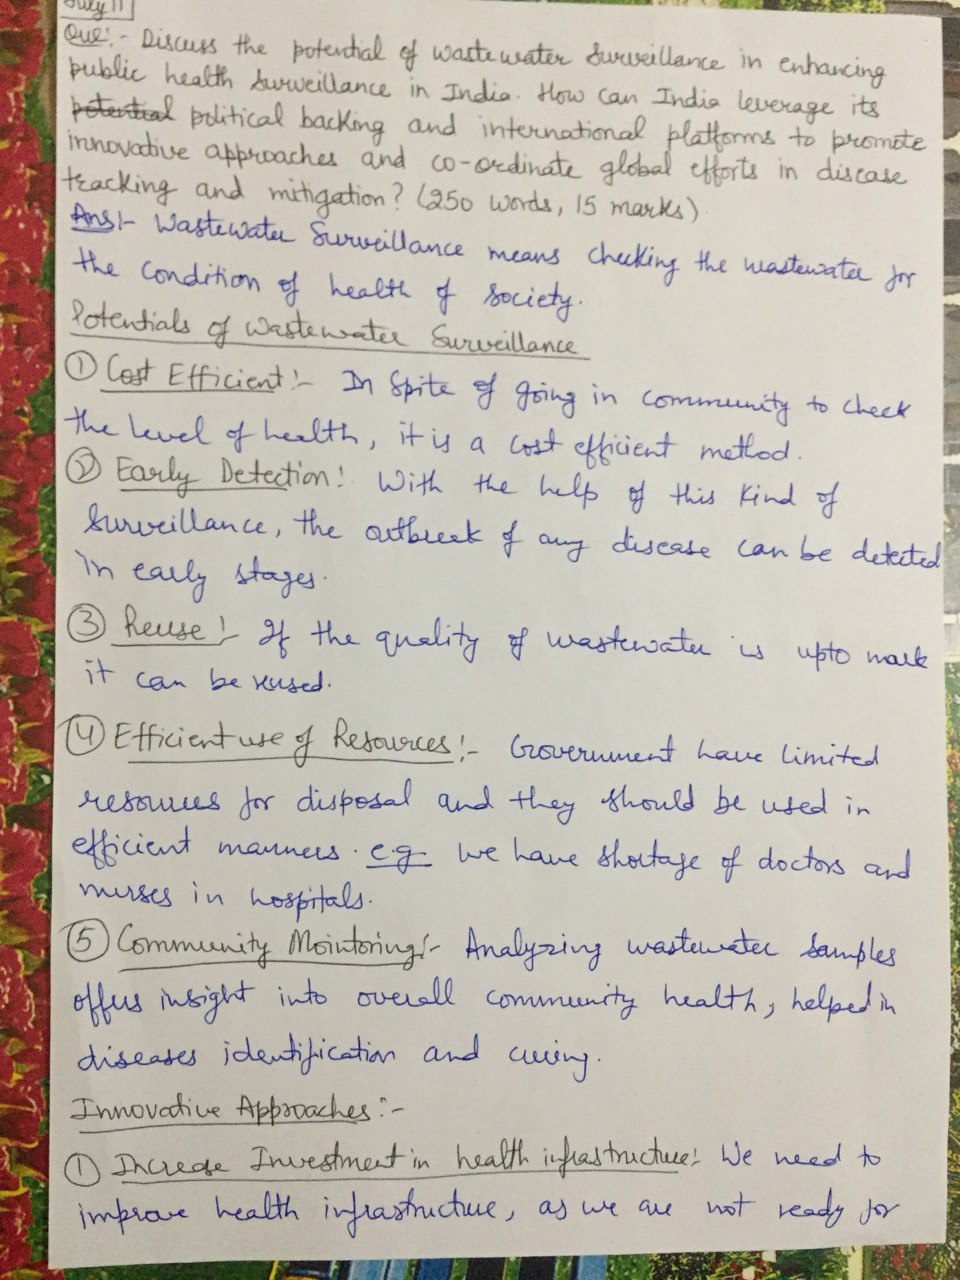 July 11
Que:- Discuss the potential of wastewater surveillance in enhancing
public health surveillance in India. How can India leverage its
potential political backing and international platforms to promote
innovative approaches and co-ordinate global efforts in disease
tracking and mitigation? (250 words, 15 marks)
Ans:- Wastewater Surveillance means checking the wastewater for
the condition of health of society.
Potentials of Wastewater Surveillance
① Cost Efficient:- In Spite of going in community to check
the level of health, it is a cost efficient method.
② Early Detection:- With the help of this kind of
surveillance, the outbreak of any disease can be detected
in early stages.
③ Reuse:- If the quality of wastewater is upto mark
it can be reused.
④ Efficient use of Resources:- Government have limited
resources for disposal and they should be used in
efficient manners. e.g. we have shortage of doctors and
nurses in hospitals.
⑤ Community Mointoring:- Analyzing wastewater samples
offers insight into overall community health, helped in
diseases identification and curing.
Innovative Approaches:-
① Increase Investment in health infrastructure:- We need to
improve health infrastructure, as we are not ready for